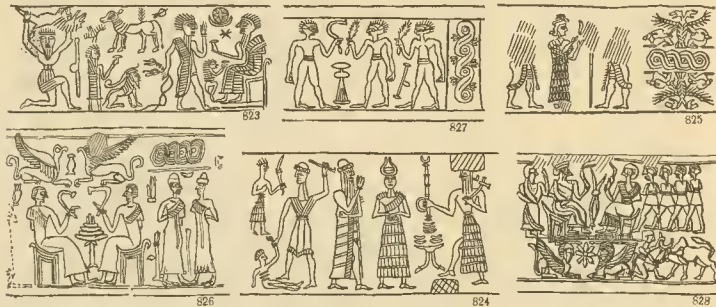 823
827
825
826
824
828